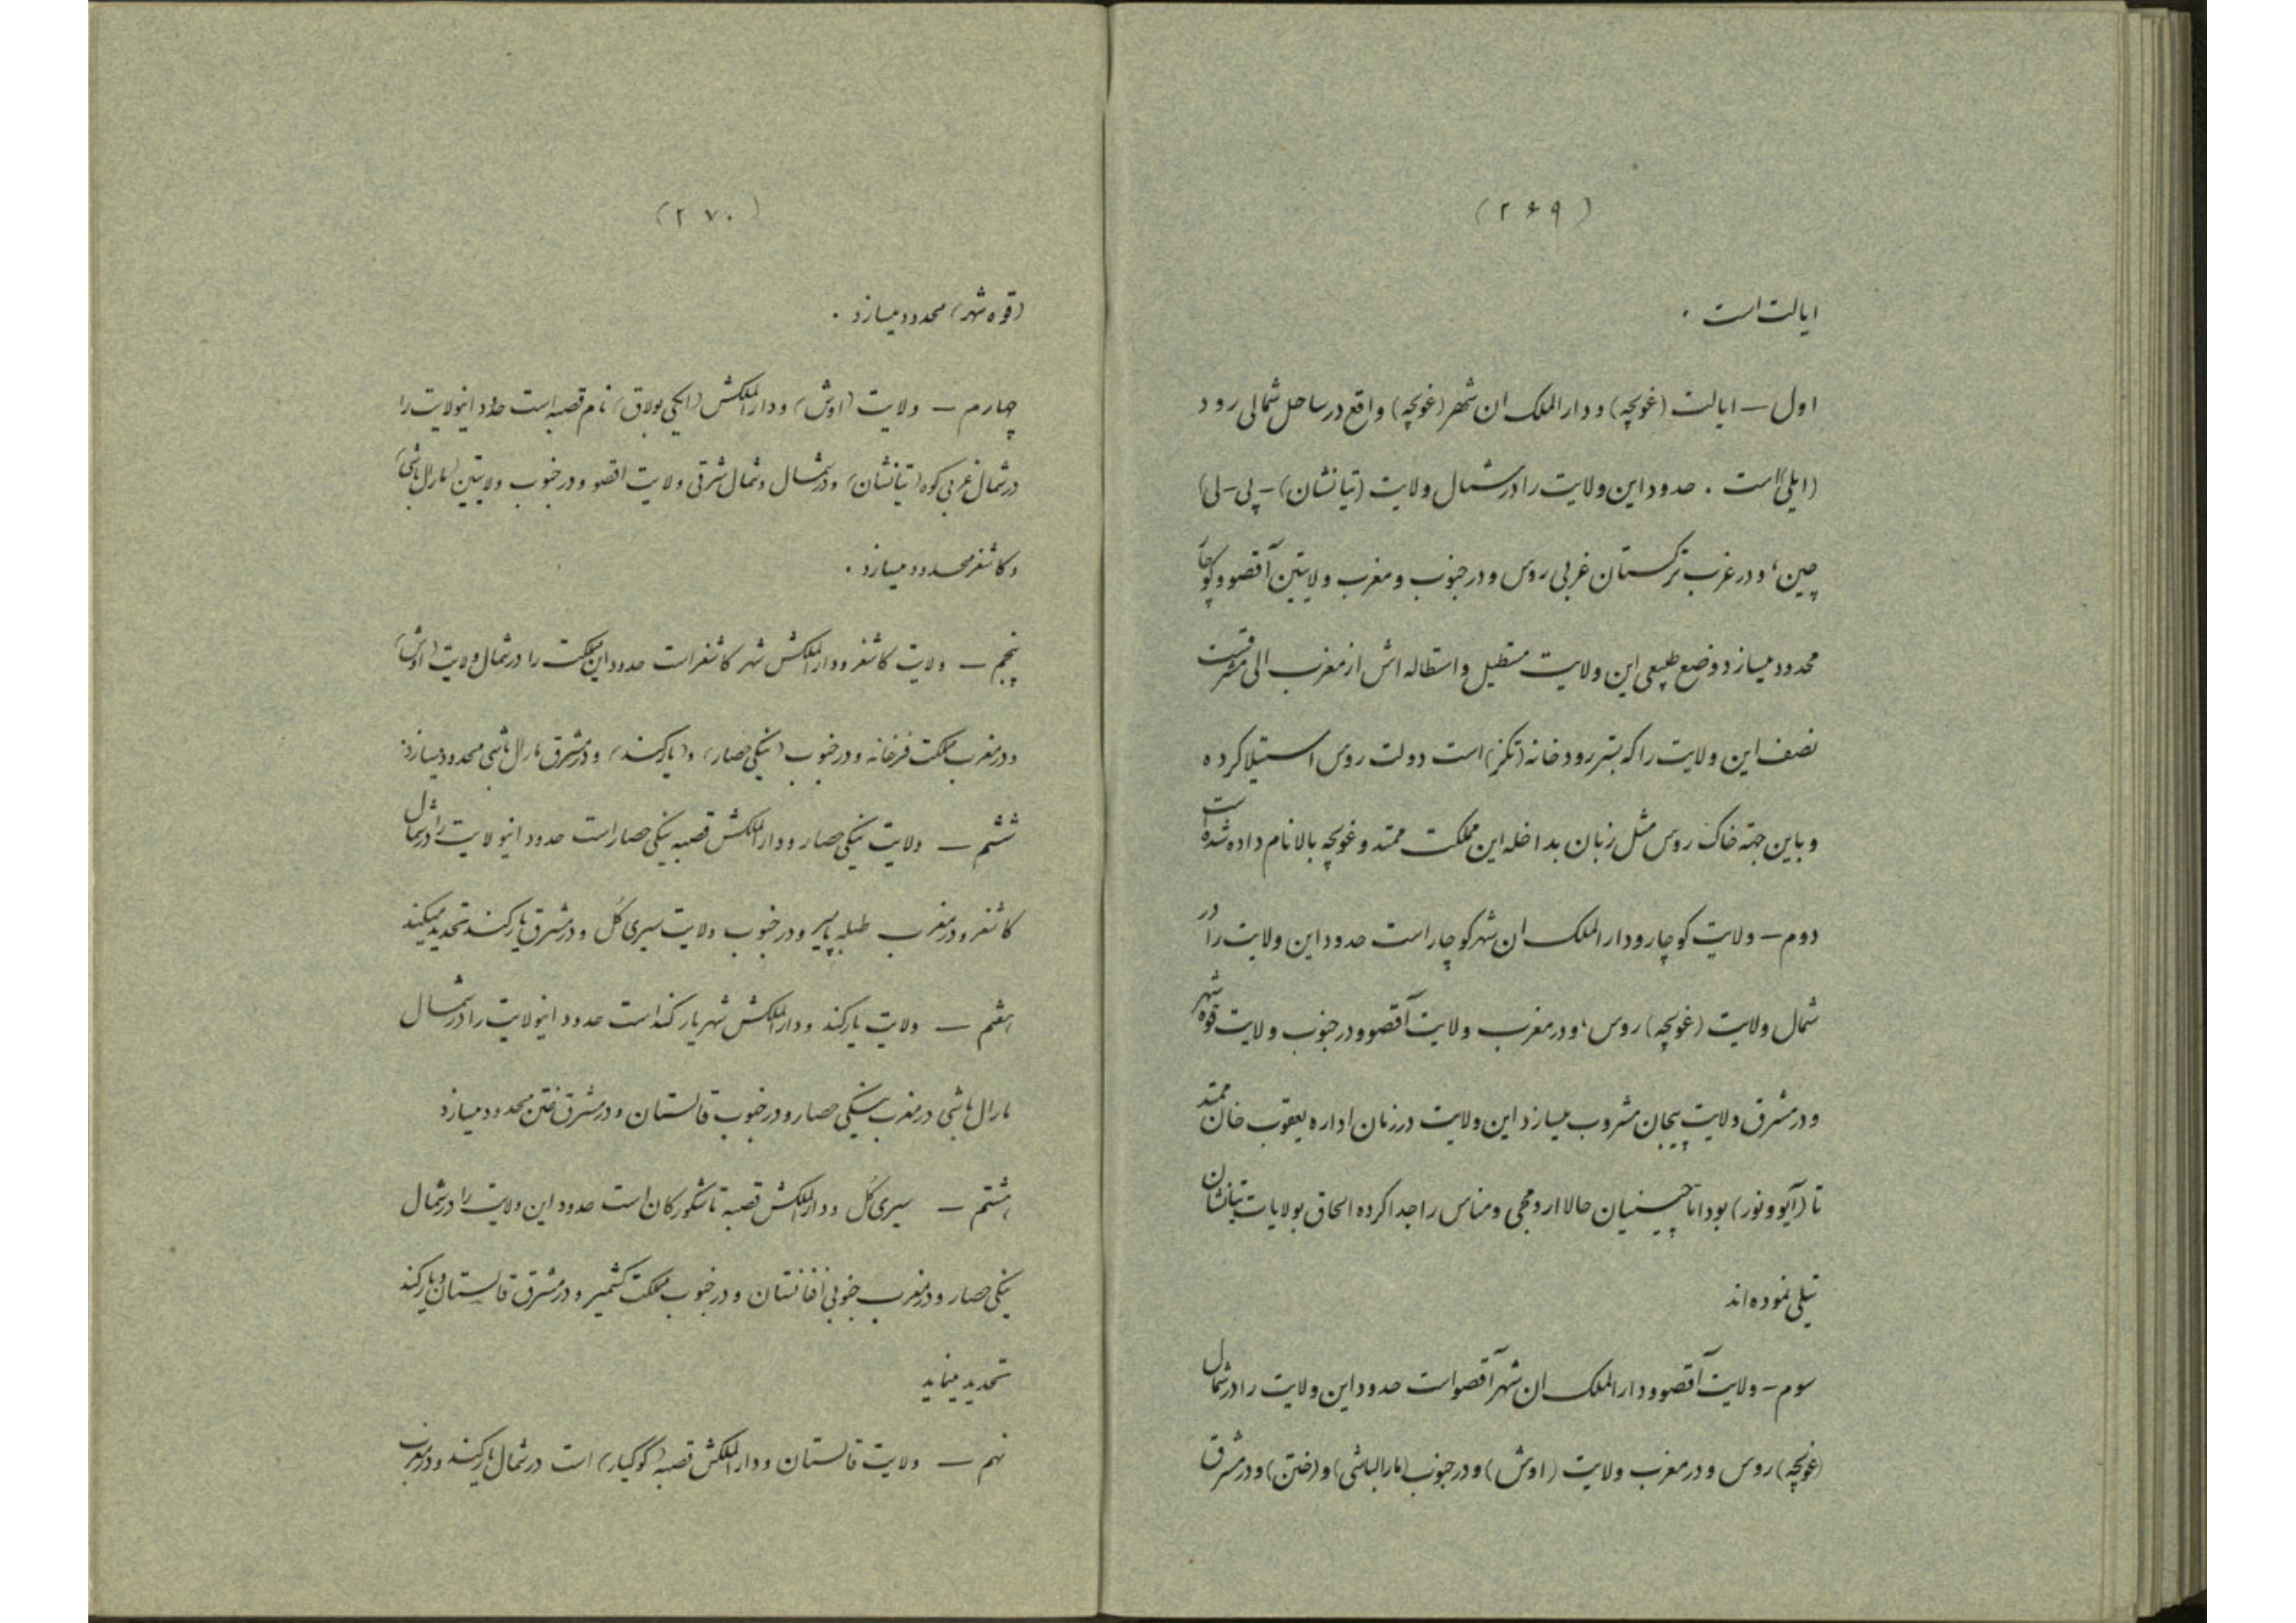 (۲۶۹)
ایالت است .
اول — ایالت (غولچه) و دارالملک ان شهر (غولچه) واقع در ساحل شمالی رود
(ایلی) است . حدود این ولایت را در شمال ولایت (تیانشان) - پی - لی)
چین، و در غرب ترکستان غربی روس و در جنوب و مغرب ولایتین آقصو و کوچا
محدود میسازد وضع طبیعی این ولایت مستطیل و استطاله اش از مغرب الی مشرقست
نصف این ولایت را که بستر رودخانه (تکز) است دولت روس استیلا کرده
و باین جهة خاک روس مثل زبان بداخله این مملکت ممتد و غولچه بالا نام داده شده است
دوم — ولایت کوچار و دارالملک ان شهر کوچار است حدود این ولایت را در
شمال ولایت (غولچه) روس، و در مغرب ولایت آقصو و در جنوب ولایت قوه شهر
و در مشرق ولایت پیجان مشروب میسازد این ولایت در زمان اداره یعقوب خان ممتد
تا (آیو و نور) بود اما چینیان حالا ارومچی و مناس را جدا کرده الحاق بولایات تیانشان
تیلی نموده اند
سوم — ولایت آقصو و دارالملک ان شهر آقصو است حدود این ولایت را در شمال
(غولچه) روس و در مغرب ولایت (اوش) و در جنوب (مارالباشی) و (ختن) و در مشرق
(۲۷۰)
(قوه شهر) محدود میسازد .
چهارم — ولایت (اوش) و دارالملکش (ایکی بولاق) نام قصبه است حدود اینولایت را
در شمال غربی کوه (تیانشان) و در شمال و شمال شرقی ولایت اقصو و در جنوب ولایتین (مارال باشی)
و کاشغر محدود میسازد .
پنجم — ولایت کاشغر و دارالملکش شهر کاشغر است حدود این مملکت را در شمال ولایت (اوش)
و در مغرب مملکت فرغانه و در جنوب (ینگی حصار) و (یارکند) و در مشرق مارال باشی محدود میسازد .
ششم — ولایت ینگی حصار و دارالملکش قصبه ینگی حصار است حدود اینولایت را در شمال
کاشغر و در مغرب طبله پامیر و در جنوب ولایت سیری کل و در مشرق یارکند تحدید میکند
هفتم — ولایت یارکند و دارالملکش شهر یارکند است حدود اینولایت را در شمال
مارال باشی در مغرب ینگی حصار و در جنوب قالستان و در مشرق ختن محدود میسازد
هشتم — سیری کل و دارالملکش قصبه تاشکورکان است حدود این ولایت را در شمال
ینگی حصار و در مغرب جنوبی افغانستان و در جنوب مملکت کشمیر و در مشرق قالستان و یارکند
تحدید مینماید
نهم — ولایت قالستان و دارالملکش قصبه (کوگیار) است در شمال یارکند و در مغرب